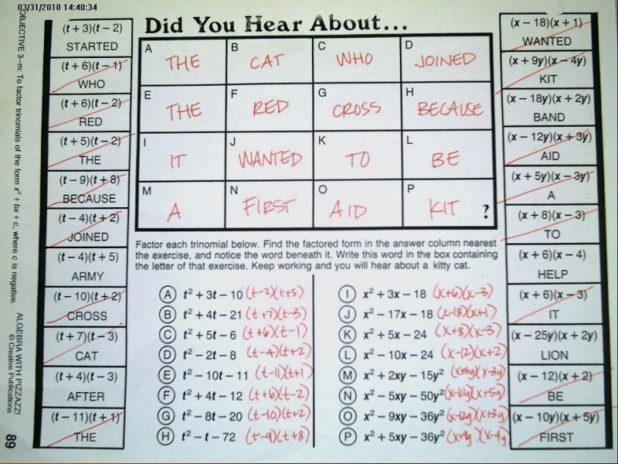 03/31/2010 14:40:34
OBJECTIVE 3–m: To factor trinomials of the form x² + bx + c, where c is negative.
ALGEBRA WITH PIZZAZZ!
© Creative Publications
89
(t + 3)(t − 2)
STARTED
(t + 6)(t − 1)
WHO
(t + 6)(t − 2)
RED
(t + 5)(t − 2)
THE
(t − 9)(t + 8)
BECAUSE
(t − 4)(t + 2)
JOINED
(t − 4)(t + 5)
ARMY
(t − 10)(t + 2)
CROSS
(t + 7)(t − 3)
CAT
(t + 4)(t − 3)
AFTER
(t − 11)(t + 1)
THE
Did You Hear About...
A THE B CAT C WHO D JOINED
E THE F RED G CROSS H BECAUSE
I IT J WANTED K TO L BE
M A N FIRST O AID P KIT ?
Factor each trinomial below. Find the factored form in the answer column nearest
the exercise, and notice the word beneath it. Write this word in the box containing
the letter of that exercise. Keep working and you will hear about a kitty cat.
A t² + 3t − 10 (t-2)(t+5)
B t² + 4t − 21 (t+7)(t-3)
C t² + 5t − 6 (t+6)(t-1)
D t² − 2t − 8 (t-4)(t+2)
E t² − 10t − 11 (t-11)(t+1)
F t² + 4t − 12 (t+6)(t-2)
G t² − 8t − 20 (t-10)(t+2)
H t² − t − 72 (t-9)(t+8)
I x² + 3x − 18 (x+6)(x-3)
J x² − 17x − 18 (x-18)(x+1)
K x² + 5x − 24 (x+8)(x-3)
L x² − 10x − 24 (x-12)(x+2)
M x² + 2xy − 15y² (x+5y)(x-3y)
N x² − 5xy − 50y² (x-10y)(x+5y)
O x² − 9xy − 36y² (x-12y)(x+3y)
P x² + 5xy − 36y² (x+9y)(x-4y)
(x − 18)(x + 1)
WANTED
(x + 9y)(x − 4y)
KIT
(x − 18y)(x + 2y)
BAND
(x − 12y)(x + 3y)
AID
(x + 5y)(x − 3y)
A
(x + 8)(x − 3)
TO
(x + 6)(x − 4)
HELP
(x + 6)(x − 3)
IT
(x − 25y)(x + 2y)
LION
(x − 12)(x + 2)
BE
(x − 10y)(x + 5y)
FIRST